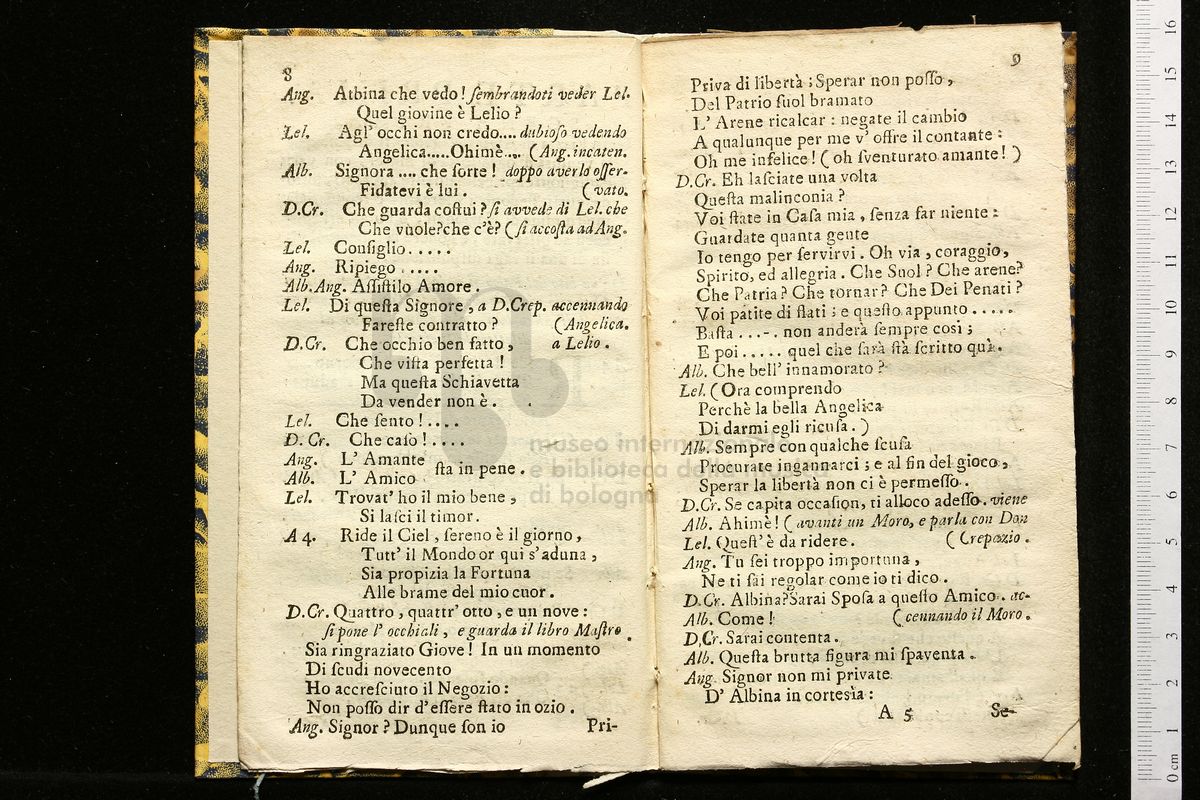 8
Ang. Albina che vedo! ſembrandoti veder Lel.
Quel giovine è Lelio?
Lel. Agl' occhi non credo.... dubioſo vedendo
Angelica.....Ohimè.... (Ang. incaten.
Alb. Signora .... che ſorte! doppo averlo oſſer-
Fidatevi è lui. (vato.
D.Cr. Che guarda coſtui? ſi avvede di Lel. che
Che vuole? che c'è? (ſi accoſta ad Ang.
Lel. Conſiglio.....
Ang. Ripiego.....
Alb. Ang. Aſſiſtilo Amore.
Lel. Di queſta Signore, a D.Crep. accennando
Fareſte contratto? (Angelica.
D.Cr. Che occhio ben fatto, a Lelio.
Che viſta perfetta!
Ma queſta Schiavetta
Da vender non è.
Lel. Che ſento!....
D. Cr. Che caſo!....
Ang. L' Amante
Alb. L' Amico ſta in pene.
Lel. Trovat' ho il mio bene,
Si laſci il timor.
A 4. Ride il Ciel, ſereno è il giorno,
Tutt' il Mondo or qui s'aduna,
Sia propizia la Fortuna
Alle brame del mio cuor.
D.Cr. Quattro, quattr' otto, e un nove:
ſi pone l' occhiali, e guarda il libro Maſtro.
Sia ringraziato Giove! In un momento
Di ſcudi novecento
Ho accreſciuto il Negozio:
Non poſſo dir d'eſſere ſtato in ozio.
Ang. Signor? Dunque ſon io
Pri-
9
Priva di libertà; Sperar non poſſo,
Del Patrio ſuol bramato
L' Arene ricalcar: negate il cambio
A qualunque per me v' offre il contante:
Oh me infelice! (oh ſventurato amante!)
D.Cr. Eh laſciate una volta
Queſta malinconia?
Voi ſtate in Caſa mia, ſenza far niente:
Guardate quanta gente
Io tengo per ſervirvi. Oh via, coraggio,
Spirito, ed allegria. Che Suol? Che arene?
Che Patria? Che tornar? Che Dei Penati?
Voi patite di flati; e queſto appunto.....
Baſta ..... non anderà ſempre così;
E poi ..... quel che ſarà ſtà ſcritto quì.
Alb. Che bell' innamorato?
Lel. (Ora comprendo
Perchè la bella Angelica
Di darmi egli ricuſa.)
Alb. Sempre con qualche ſcuſa
Procurate ingannarci; e al fin del gioco,
Sperar la libertà non ci è permeſſo.
D.Cr. Se capita occaſion, ti alloco adeſſo. viene
Alb. Ahimè! (avanti un Moro, e parla con Don
Lel. Queſt' è da ridere. (Crepazio.
Ang. Tu ſei troppo importuna,
Ne ti ſai regolar come io ti dico.
D.Cr. Albina? Sarai Spoſa a queſto Amico. ac-
Alb. Come! (cennando il Moro.
D.Cr. Sarai contenta.
Alb. Queſta brutta figura mi ſpaventa.
Ang. Signor non mi private
D' Albina in cortesìa:
A 5 Se-
museo internazionale
e biblioteca della musica
di bologna
0 cm 1 2 3 4 5 6 7 8 9 10 11 12 13 14 15 16